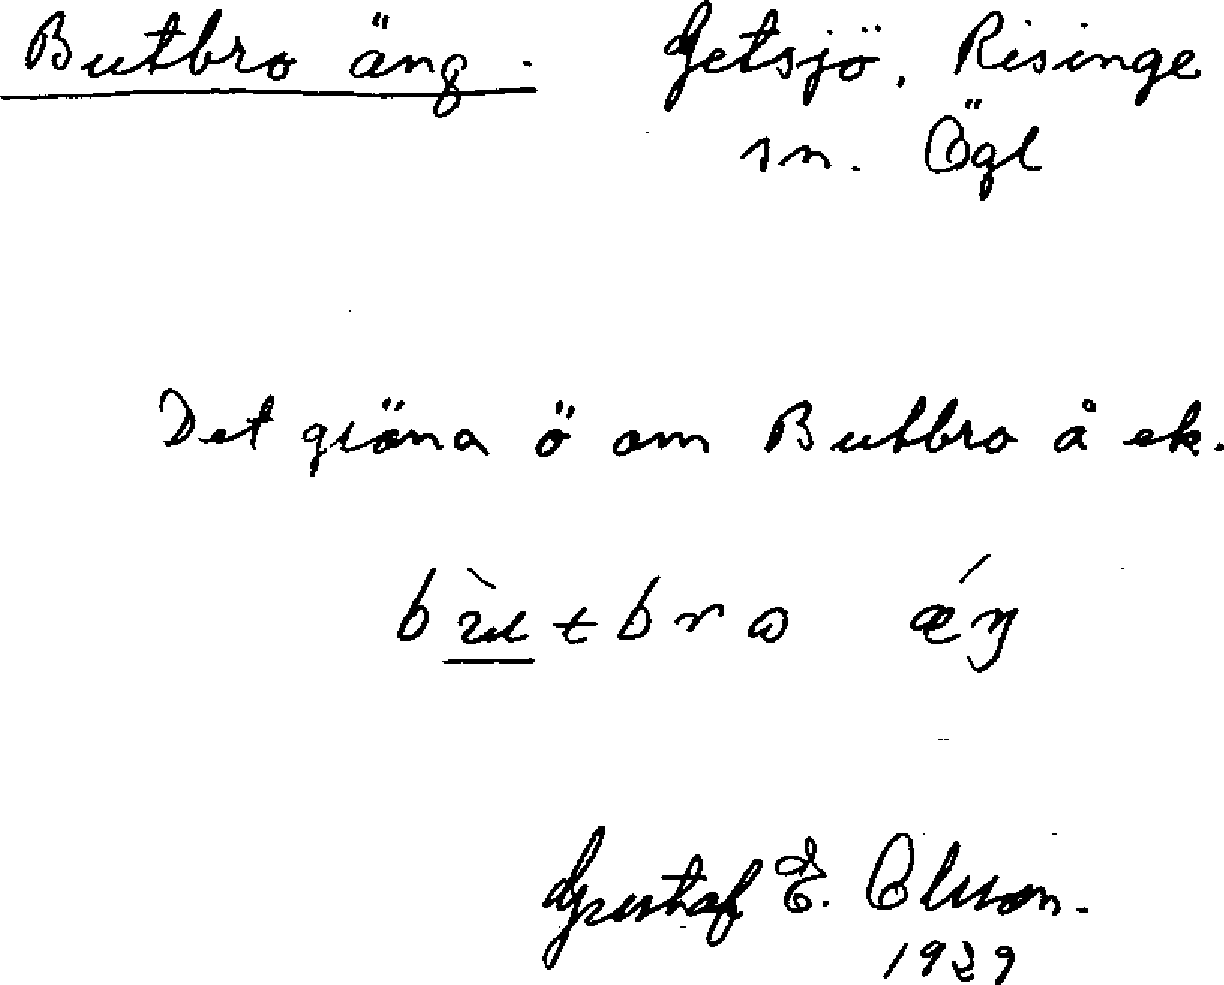 Butbro äng. Getsjö, Risinge
sn. Ögl
Det gröna ö om Butbro å ek.
bùtbro ǽŋ
Gustaf E. Olsson.
1929